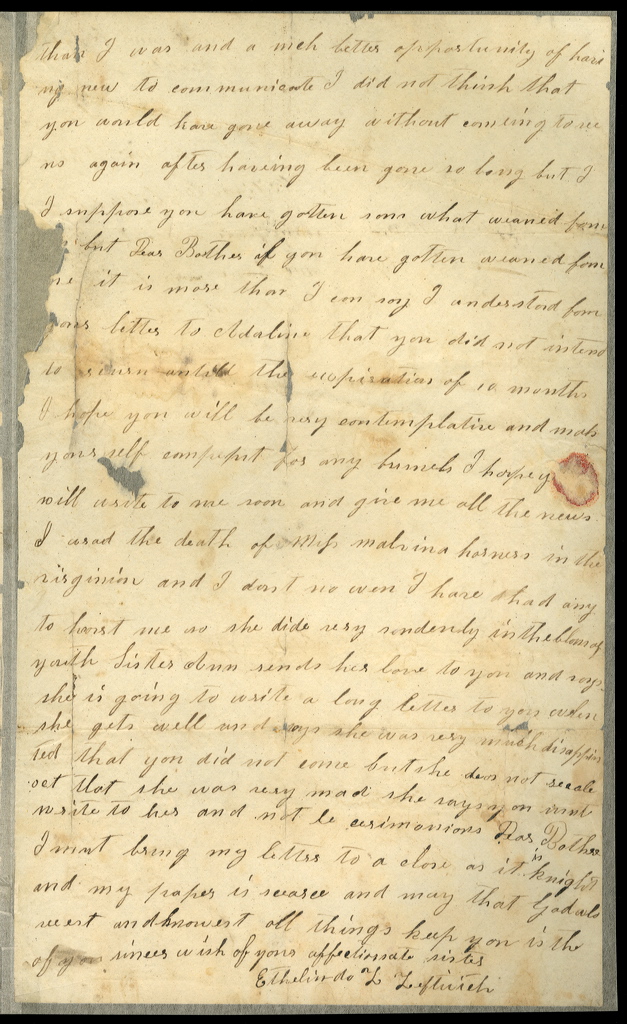 than I was and a meh better opportunity of havi
ng new to communicate I did not think that
you would have gone away without comeing to see
us again after haveing been gone so long but I
I suppose you have gotten som what weaned from
but Dear Bother if you have gotten weaned from
me it is more than I can say I understood from
your letter to Adaline that you did not intend
to return untill the expiration of 10 months
I hope you will be very contemplative and mak
your self compepit for any buinels I hopey
will write to me soon and give me all the news
I read the death of Miss malvina harness in the
virginian and I dont no wen I have had any
to hurt me so she dide very sondendly in the bloom of
youth Sister Ann sends her love to you and says
she is going to write a long letter to you when
she gets well and says she was very much disappin
ted that you did not come but she does not
that she was very mad she says you must
write to her and not be cerimonious Dear Bother
I must bring my letter to a close as it is knight
and my paper is scarce and may that God
and knowest all things keep you is the
of your sincer wish of your affectionate sister
Ethelinda L Leftwich